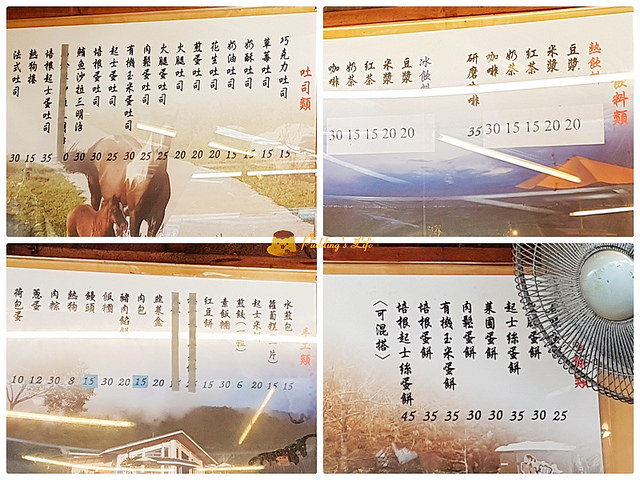 吐司類
巧克力吐司 15
草莓吐司 15
奶酥吐司 15
奶油吐司 15
花生吐司 20
煎蛋吐司 20
火腿吐司 20
火腿蛋吐司 25
肉鬆蛋吐司 25
有機玉米蛋吐司 30
起士蛋吐司 25
培根蛋吐司 30
鮪魚沙拉三明治 30
培根起士蛋吐司 35
熱狗捲 15
法式吐司 30
飲料類
熱飲料
豆漿 20
米漿 20
紅茶 15
奶茶 15
咖啡 30
研磨咖啡 35
冰飲料
豆漿 20
米漿 20
紅茶 15
奶茶 15
咖啡 30
Pudding's Life
水煎包 15
蘿蔔糕(一片) 15
起士米 20
煎餃(一粒) 6
素飯糰 30
紅豆餅 15
韭菜盒 20
肉包 15
豬肉餡餅 20
飯糰 30
饅頭 15
熱狗 8
肉粽 30
蔥蛋 12
荷包蛋 10
25
蛋餅 30
起士絲蛋餅 35
菜圃蛋餅 30
肉鬆蛋餅 30
有機玉米蛋餅 35
培根蛋餅 35
培根起士絲蛋餅 45
〈可混搭〉